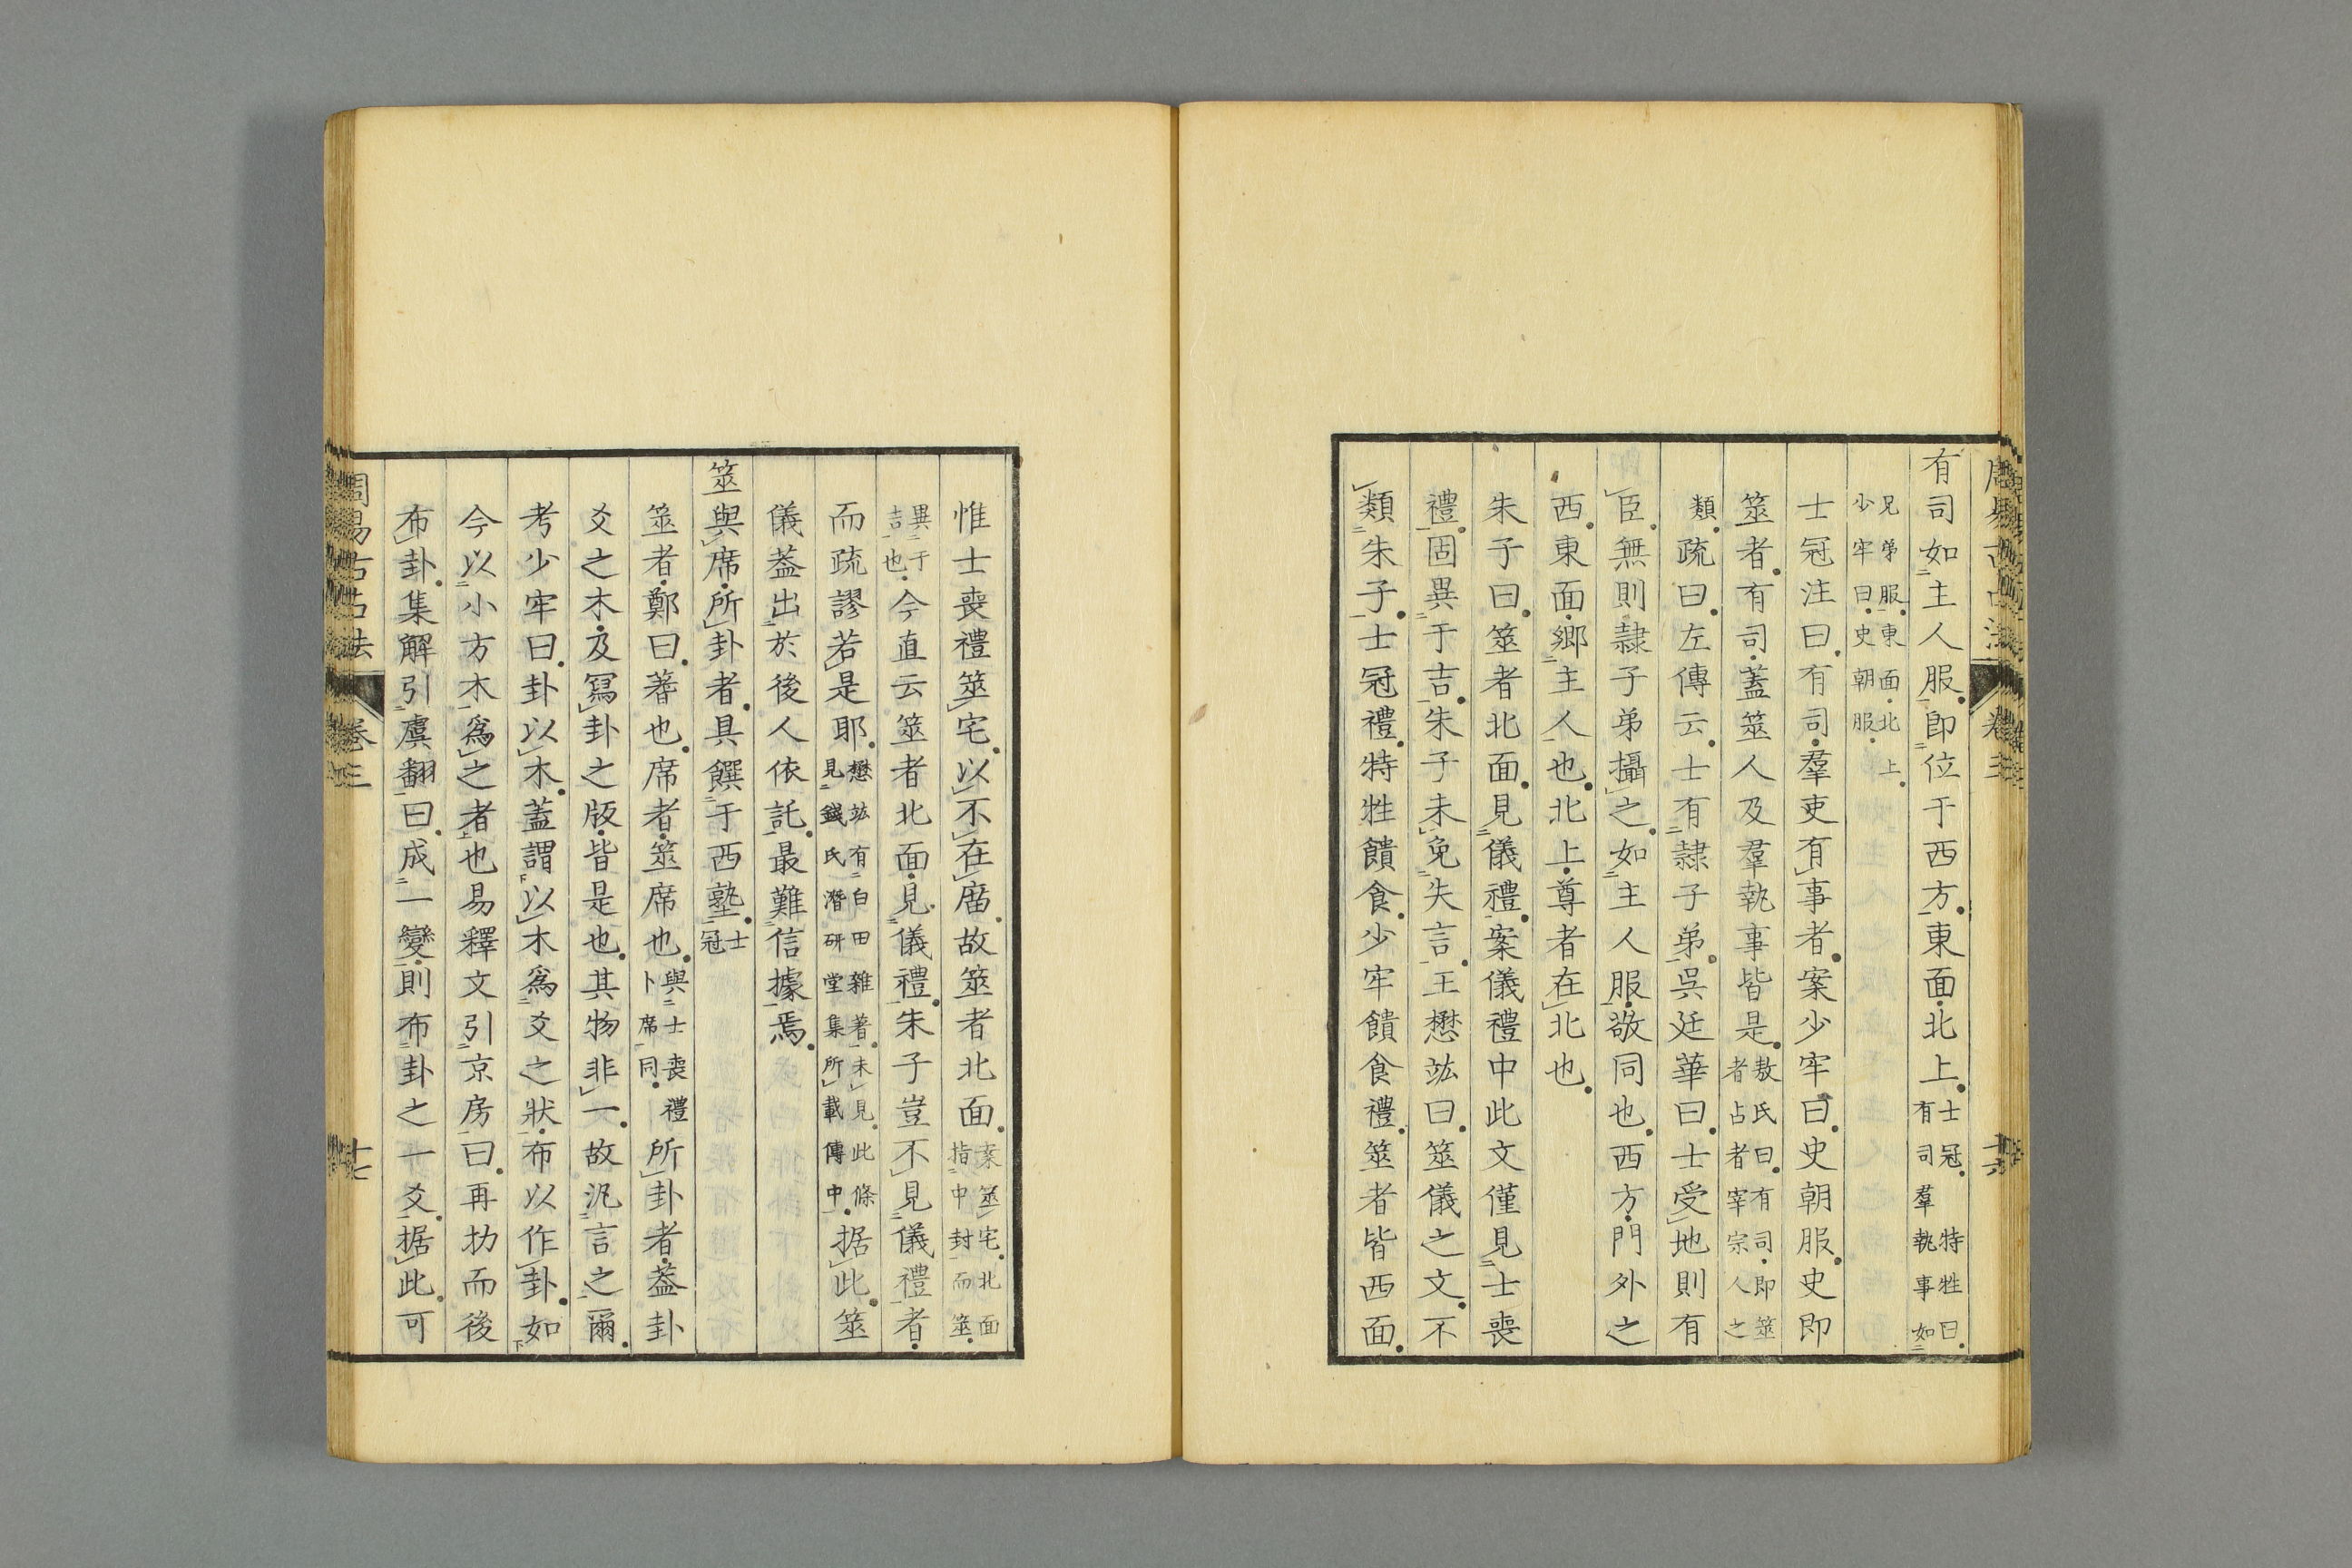 有司如主人服。即位于西方。東面北上。士冠。特牲曰。有司羣執事如
兄弟服。東面北上。少牢曰。史朝服。
士冠注曰。有司羣吏有事者。案少牢曰。史朝服。史即
筮者。有司蓋筮人及羣執事皆是。敖氏曰。有司即筮者占者宰宗人之
類。疏曰。左傳云。士有隸子弟。吳廷華曰。士受地則有
臣。無則隸子弟攝之。如主人服。敬同也。西方門外之
西。東面鄉主人也。北上尊者在北也。
朱子曰。筮者北面。見儀禮。案儀禮中此文僅見士喪
禮。固異于吉。朱子未免失言。王懋竑曰。筮儀之文。不
類朱子。士冠禮。特牲饋食。少牢饋食禮。筮者皆西面。
惟士喪禮筮宅。以不在廟。故筮者北面。案筮宅。北面指中封而筮。
異于吉也。今直云筮者北面。見儀禮。朱子豈不見儀禮者。
而疏謬若是耶。懋竑有白田雜著。未見。此條見錢氏潛研堂集所載傳中。据此。筮
儀葢出於後人依託。最難信據焉。
筮與席。所卦者。具饌于西塾。士冠
筮者。鄭曰。蓍也。席者。筮席也。與士喪禮卜席同。所卦者。葢卦
爻之木。及寫卦之版。皆是也。其物非一。故汎言之爾。
考少牢曰。卦以木。蓋謂以木爲爻之狀。布以作卦。如
今以小方木爲之者也易釋文引京房曰。再扐而後
布卦。集解引虞翻曰。成一變。則布卦之一爻。据此。可
周易古占法 卷三 十七